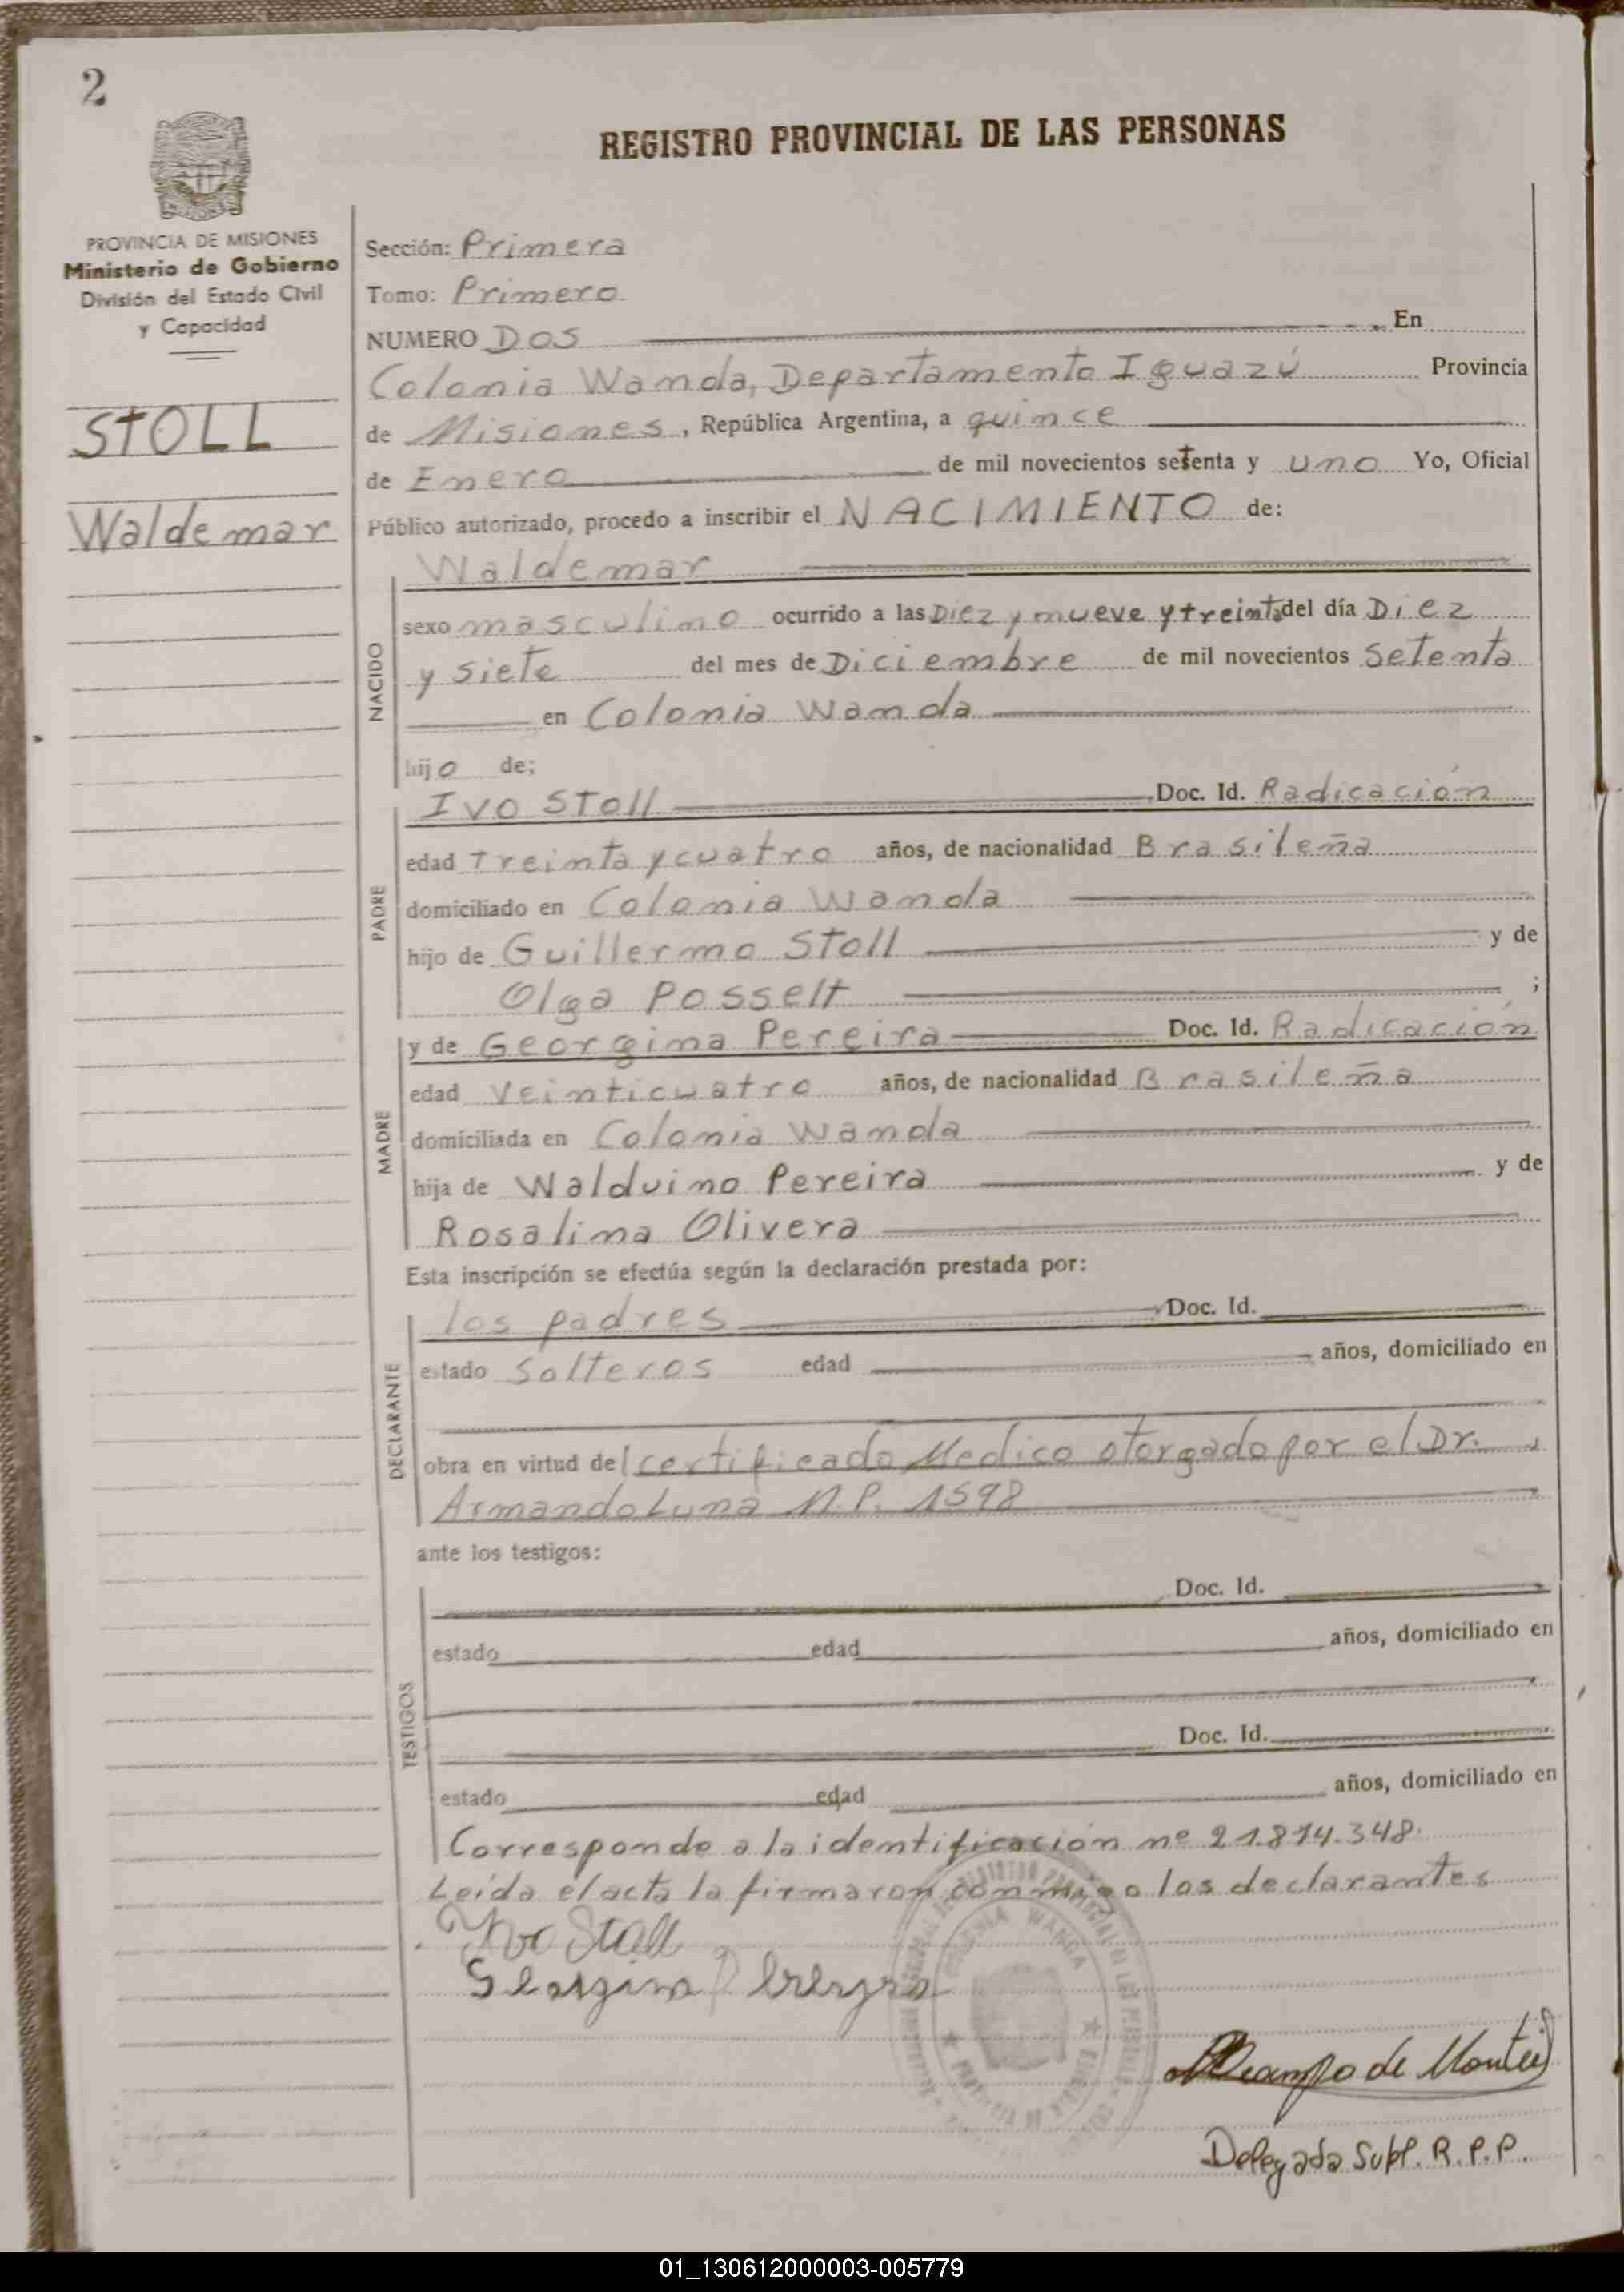 2
REGISTRO PROVINCIAL DE LAS PERSONAS
PROVINCIA DE MISIONES
Ministerio de Gobierno
División del Estado Civil
y Capacidad
STOLL
Waldemar
Sección: Primera
Tomo: Primero
NUMERO DOS En
Colonia Wanda, Departamento Iguazú Provincia
de Misiones, República Argentina, a quince
de Enero de mil novecientos setenta y uno Yo, Oficial
Público autorizado, procedo a inscribir el NACIMIENTO de:
NACIDO
Waldemar
sexo masculino ocurrido a las Diez y nueve y treinta del día Diez
y siete del mes de Diciembre de mil novecientos setenta
en Colonia Wanda
hijo de;
PADRE
Ivo Stoll Doc. Id. Radicación
edad Treinta y cuatro años, de nacionalidad Brasileña
domiciliado en Colonia Wanda
hijo de Guillermo Stoll y de
Olga Posselt ;
MADRE
y de Georgina Pereira Doc. Id. Radicación
edad Veinticuatro años, de nacionalidad Brasileña
domiciliada en Colonia Wanda
hija de Walduino Pereira y de
Rosalina Olivera
Esta inscripción se efectúa según la declaración prestada por:
DECLARANTE
los padres Doc. Id.
estado Solteros edad años, domiciliado en
obra en virtud del certificado Medico otorgado por el Dr.
Armando Luna M.P. 1598
ante los testigos:
TESTIGOS
Doc. Id.
estado edad años, domiciliado en
Doc. Id.
estado edad años, domiciliado en
Corresponde a la identificación nº 21.814.348.
Leída el acta la firmaron conmigo los declarantes
Ivo Stoll
Georgina Pereyra
COLONIA WANDA
Ocampo de
Delegada Supl. R.P.P.
01_130612000003-005779